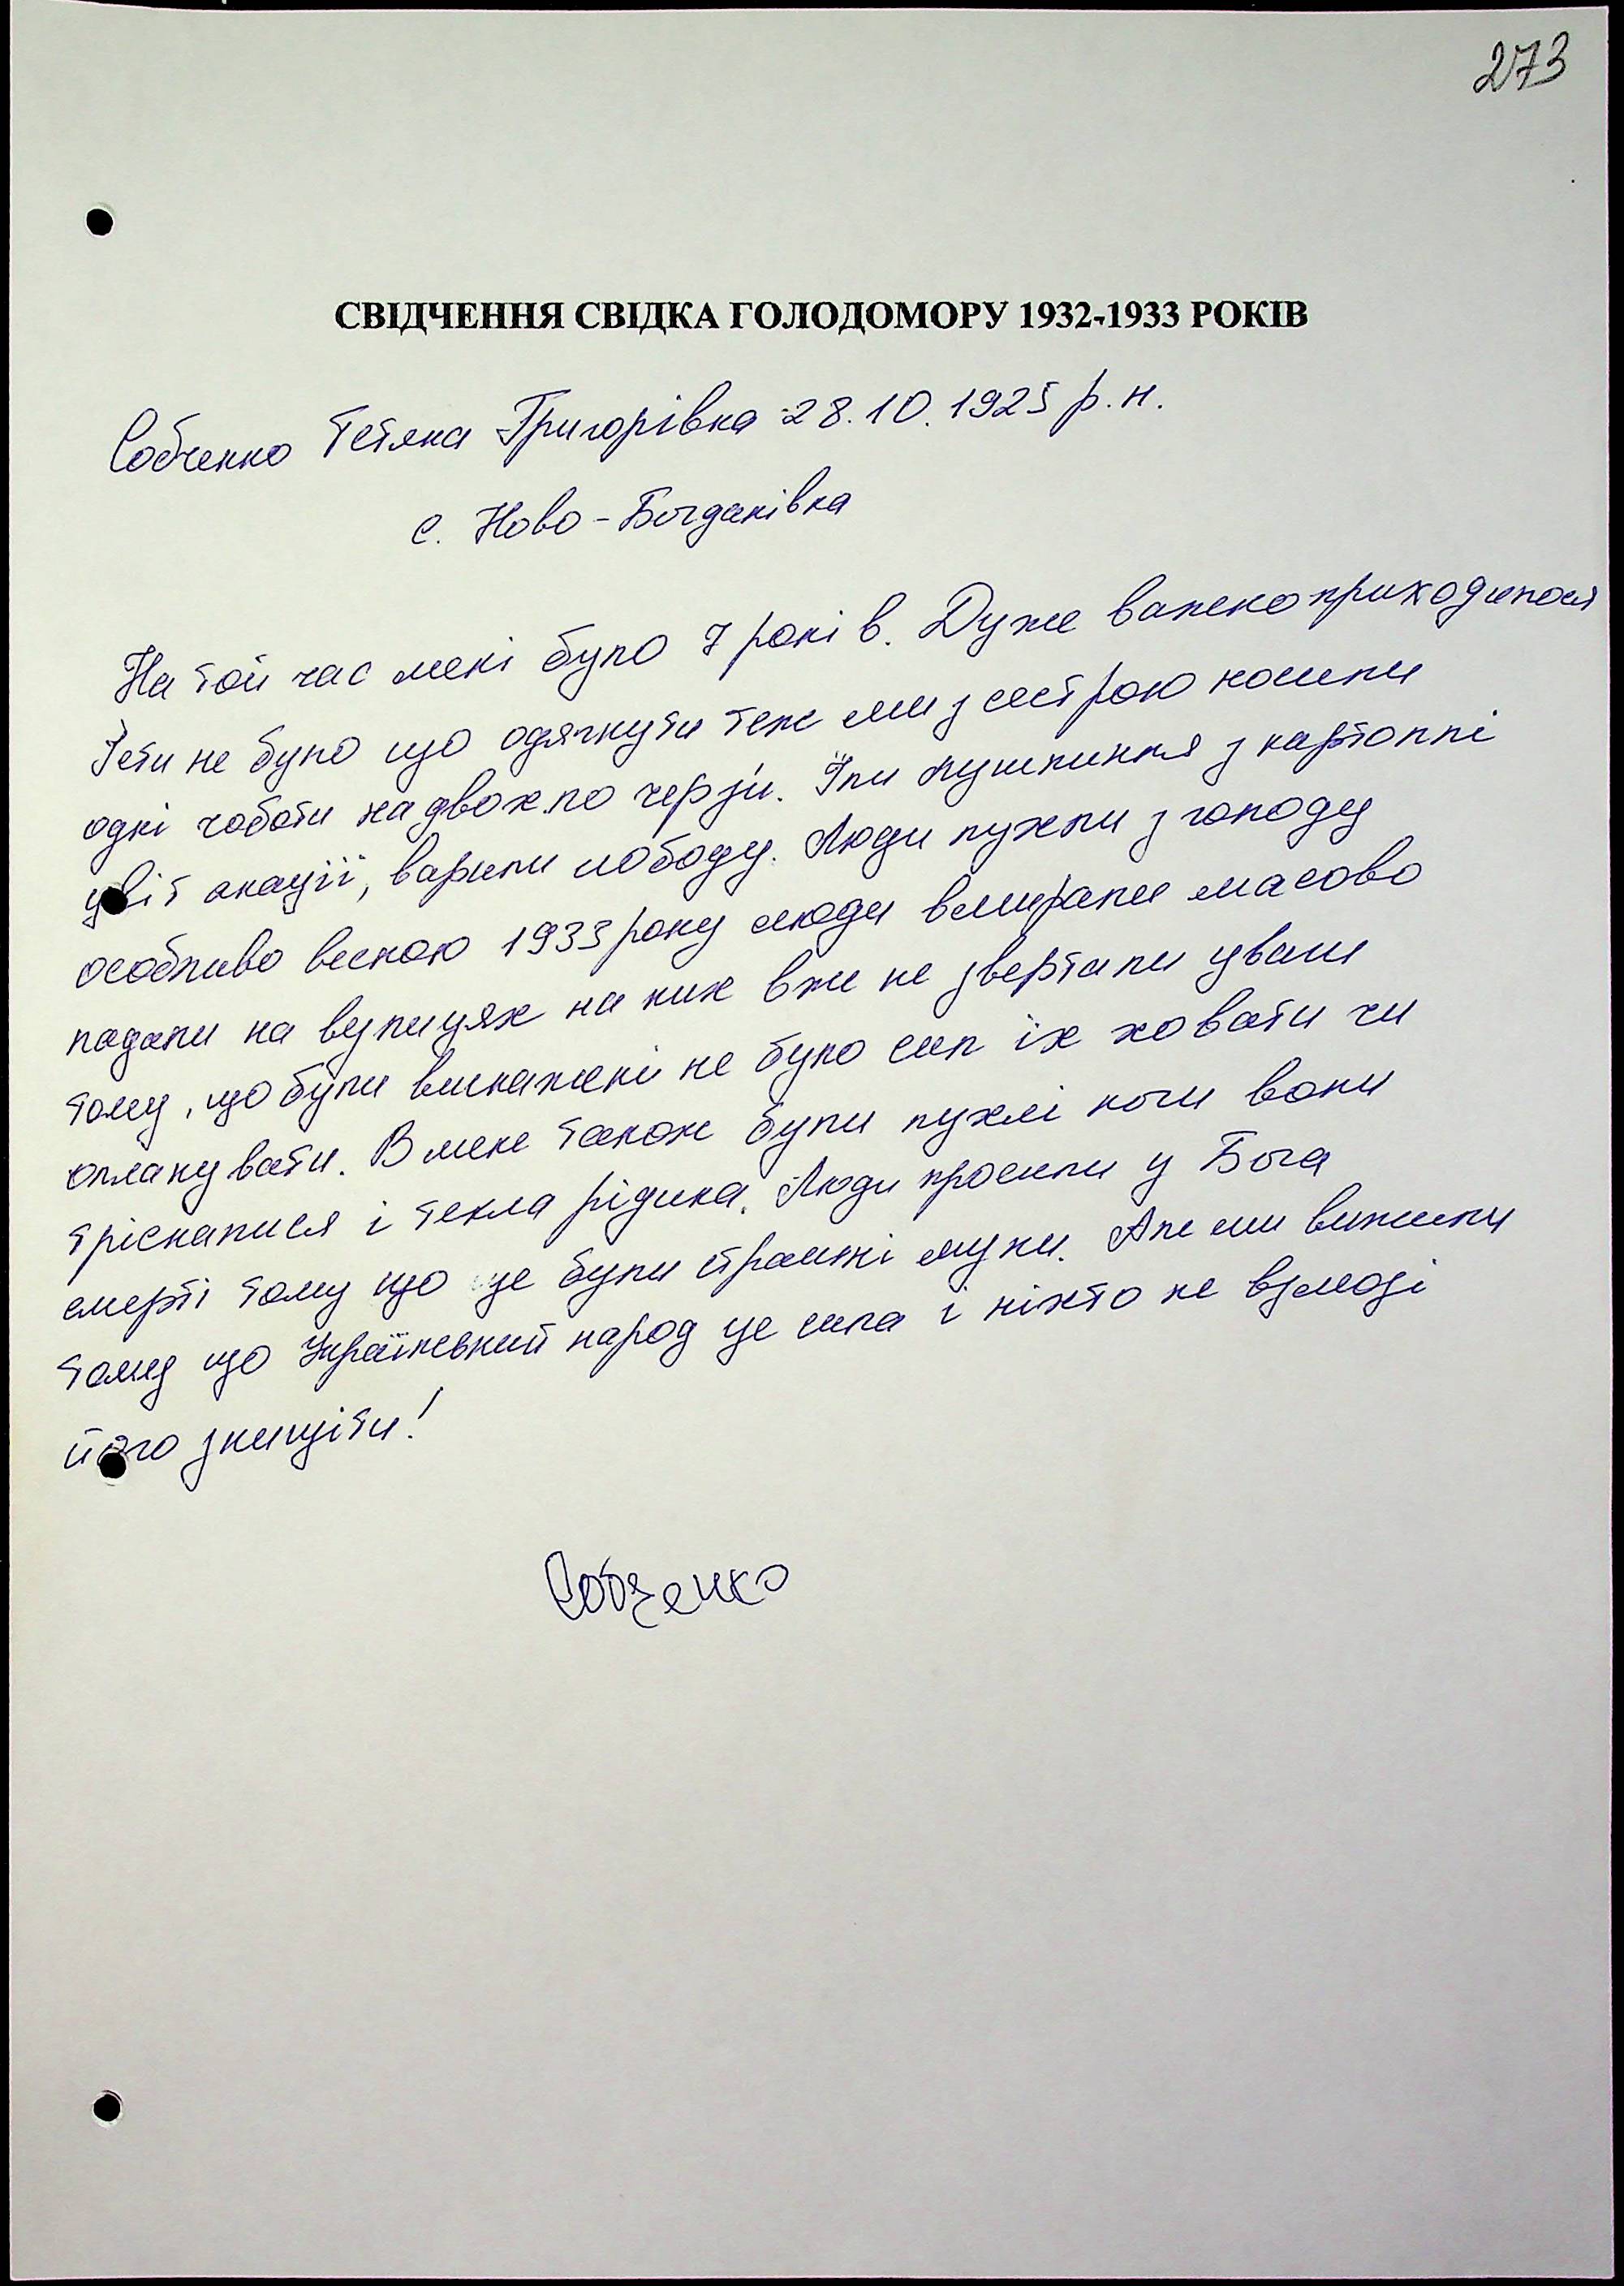 273
СВІДЧЕННЯ СВІДКА ГОЛОДОМОРУ 1932-1933 РОКІВ
Собченко Тетяна Григорівна 28.10.1925 р.н.
с. Ново-Богданівка
На той час мені було 7 років. Дуже важко приходилося
Їсти не було що одягнути теж ми з сестрою носили
одні чоботи на двох по черзі. Їли лушпиння з картоплі
цвіт акації, варили лободу. Люди пухли з голоду
особливо весною 1933 року люди вмирали масово
падали на вулицях на них вже не звертали уваги
тому, що були виснажені не було сил їх ховати чи
оплакувати. В мене також були пухлі ноги вони
тріскалися і текла рідина. Люди просили у Бога
смерті тому що це були страшні муки. Але ми вижили
тому що Український народ це сила і ніхто не взмозі
його знищіти!
Собченко